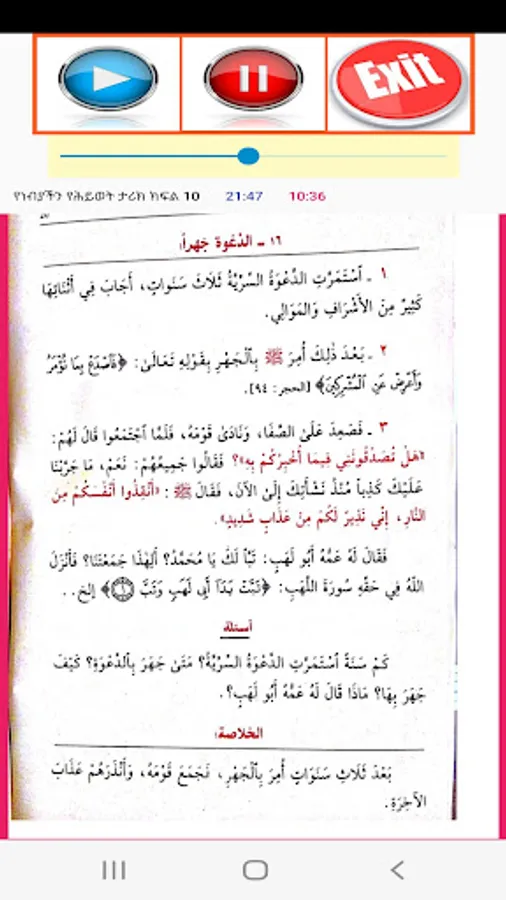 Exit
የነብያችን የሕይወት ታሪክ ክፍል 10 21:47 10:36
١٦ ـ الدَّعْوَة جَهراً:
١ ـ ٱسْتَمَرَّتِ الدَّعْوَةُ السِّرِّيَّةُ ثَلَاثَ سَنَواتٍ، أَجَابَ فِي أَثْنَائِهَا
كَثِيْرٌ مِنَ الأَشْرَافِ وَالمَوَالِي.
٢ ـ بَعْدَ ذٰلِكَ أُمِرَ ﷺ بِالْجَهْرِ بِقَوْلِهِ تَعَالَىٰ: ﴿فَٱصْدَعْ بِمَا تُؤْمَرُ
وَأَعْرِضْ عَنِ ٱلْمُشْرِكِينَ﴾ [الحجر: ٩٤].
٣ ـ فَصَعِدَ عَلَىٰ الصَّفَا، وَنَادَىٰ قَوْمَهُ، فَلَمَّا ٱجْتَمَعُوا قَالَ لَهُمْ:
«هَلْ تُصَدِّقُونَنِي فِيمَا أُخْبِرُكُمْ بِهِ»؟ فَقَالُوا جَمِيعُهُمْ: نَعَمْ، مَا جَرَّبْنَا
عَلَيْكَ كَذِباً مُنْذُ نَشْأَتِكَ إِلَىٰ الآنَ، فَقَالَ ﷺ: «أَنْقِذُوا أَنْفُسَكُمْ مِنَ
النَّارِ، إِنِّي نَذِيرٌ لَكُمْ مِنْ عَذَابٍ شَدِيدٍ».
فَقَالَ لَهُ عَمُّهُ أَبُو لَهَبٍ: تَبّاً لَكَ يَا مُحَمَّدُ؟ أَلِهٰذَا جَمَعْتَنَا؟ فَأَنْزَلَ
اللَّهُ فِي حَقِّهِ سُورَةَ اللَّهَبِ: ﴿تَبَّتْ يَدَآ أَبِي لَهَبٍ وَتَبَّ ١﴾ إلخ..
أسئلة
كَمْ سَنَةً ٱسْتَمَرَّتِ الدَّعْوَةُ السِّرِّيَّةُ؟ مَتَىٰ جَهَرَ بِالْدَّعْوَةِ؟ كَيْفَ
جَهَرَ بِهَا؟ مَاذَا قَالَ لَهُ عَمُّهُ أَبُو لَهَبٍ؟.
الخلاصة:
بَعْدَ ثَلَاثِ سَنَوَاتٍ أُمِرَ بِالْجَهْرِ، فَجَمَعَ قَوْمَهُ، وَأَنْذَرَهُمْ عَذَابَ
الآخِرَةِ.